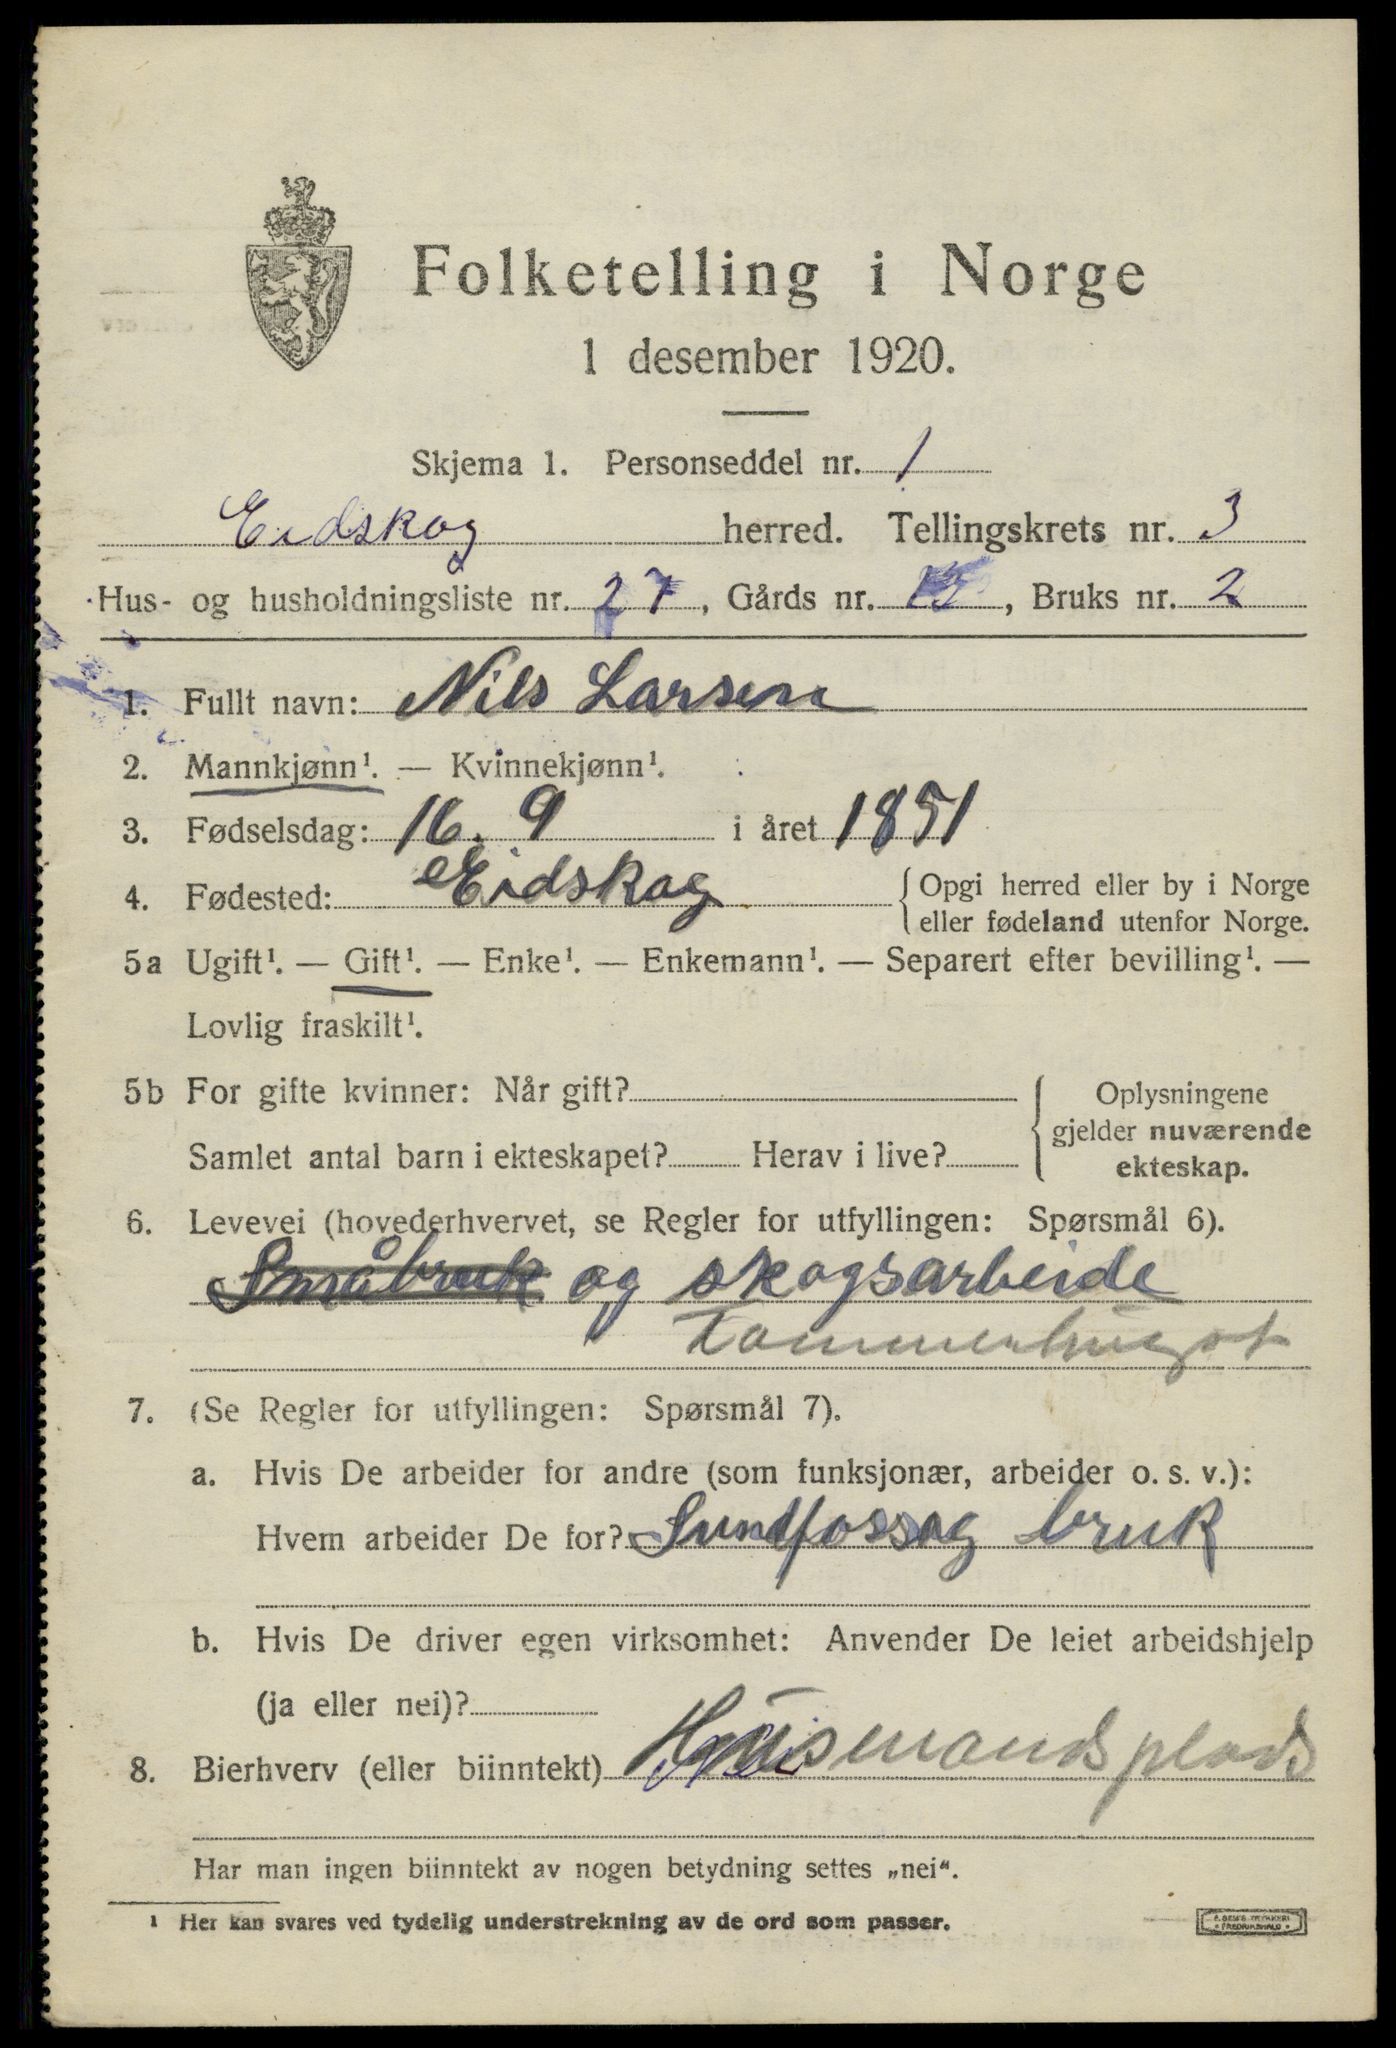 Folketelling i Norge
1 desember 1920.
Skjema 1. Personseddel nr. 1
Eidskog herred. Tellingskrets nr. 3
Hus- og husholdningsliste nr. 27, Gårds nr. 12, Bruks nr. 2
1. Fullt navn: Nils Larsen
2. Mannkjønn¹. — Kvinnekjønn¹.
3. Fødselsdag: 16. 9 i året 1851
4. Fødested: Eidskog { Opgi herred eller by i Norge
eller fødeland utenfor Norge.
5a Ugift¹. — Gift¹. — Enke¹. — Enkemann¹. — Separert efter bevilling¹. —
Lovlig fraskilt¹.
5b For gifte kvinner: Når gift?
Samlet antal barn i ekteskapet? Herav i live?
{ Oplysningene
gjelder nuværende
ekteskap.
6. Levevei (hovederhvervet, se Regler for utfyllingen: Spørsmål 6).
Småbruk og skogsarbeide
Tømmerhugst
7. (Se Regler for utfyllingen: Spørsmål 7).
a. Hvis De arbeider for andre (som funksjonær, arbeider o. s. v.):
Hvem arbeider De for? Sundfossag bruk
b. Hvis De driver egen virksomhet: Anvender De leiet arbeidshjelp
(ja eller nei)?
8. Bierhverv (eller biinntekt) Husmandsplads
Har man ingen biinntekt av nogen betydning settes „nei“.
1 Her kan svares ved tydelig understrekning av de ord som passer.